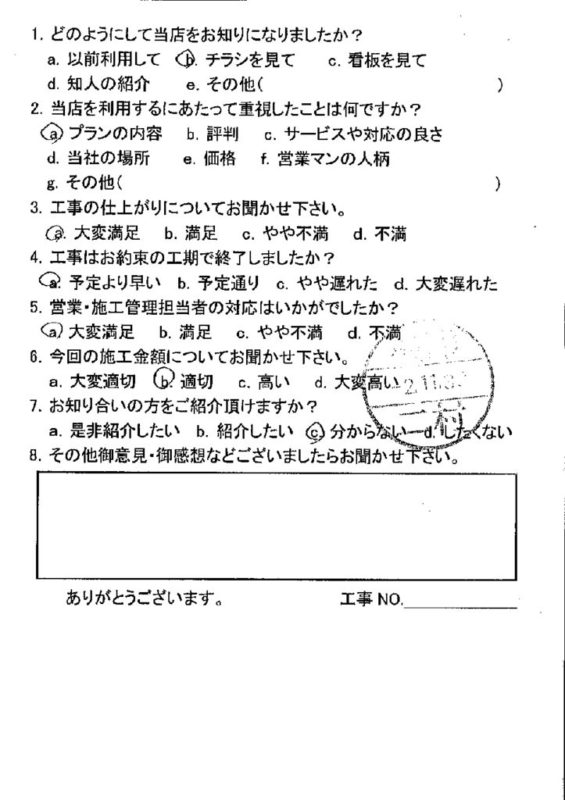 1. どのようにして当店をお知りになりましたか？
a. 以前利用して b. チラシを見て c. 看板を見て
d. 知人の紹介 e. その他( )
2. 当店を利用するにあたって重視したことは何ですか？
a. プランの内容 b. 評判 c. サービスや対応の良さ
d. 当社の場所 e. 価格 f. 営業マンの人柄
g. その他( )
3. 工事の仕上がりについてお聞かせ下さい。
a. 大変満足 b. 満足 c. やや不満 d. 不満
4. 工事はお約束の工期で終了しましたか？
a. 予定より早い b. 予定通り c. やや遅れた d. 大変遅れた
5. 営業・施工管理担当者の対応はいかがでしたか？
a. 大変満足 b. 満足 c. やや不満 d. 不満
6. 今回の施工金額についてお聞かせ下さい。
a. 大変適切 b. 適切 c. 高い d. 大変高い
7. お知り合いの方をご紹介頂けますか？
a. 是非紹介したい b. 紹介したい c. 分からない d. したくない
8. その他御意見・御感想などございましたらお聞かせ下さい。
ありがとうございます。 工事 NO.